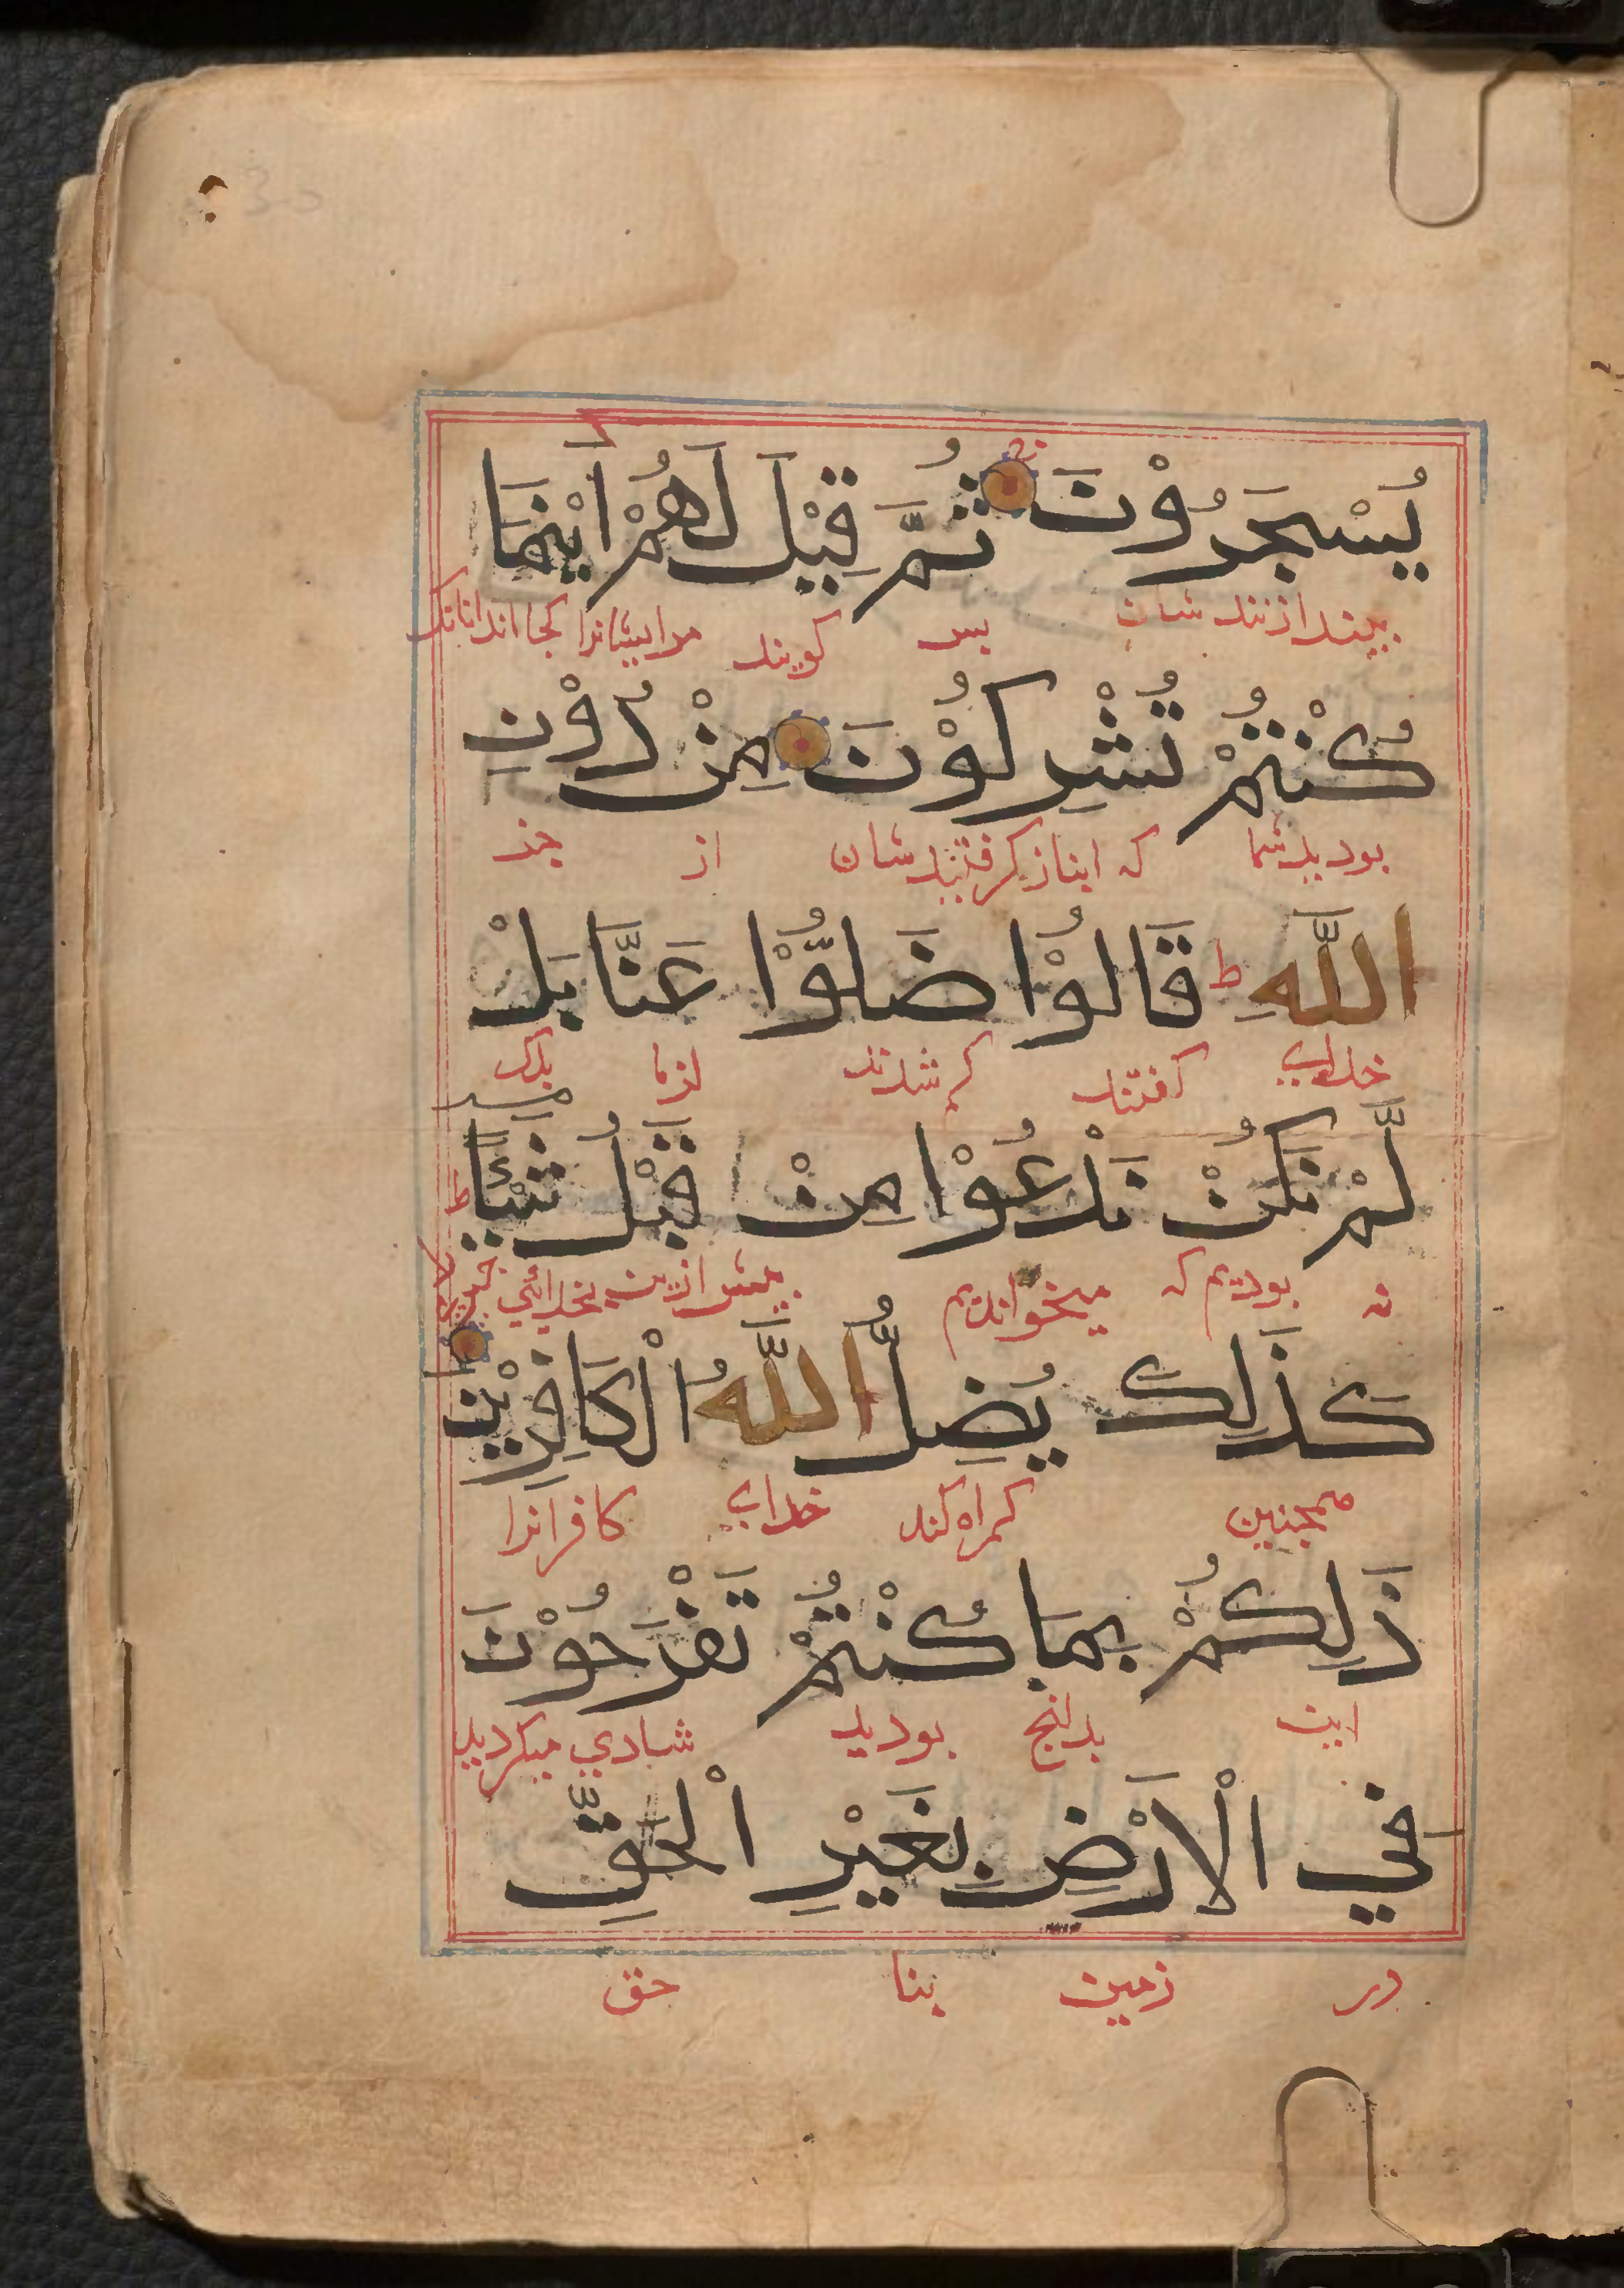 يُسْجَرُوْنَ ثُمَّ قِيْلَ لَهُمْ اَيْنَمَا
بیندازنند شان پس کویند مرایشانرا کجا اند انانک
كُنْتُمْ تُشْرِكُوْنَ مِنْ دُوْنِ
بودید شما که انباز کرفتنید شان از جز
اللّٰهِ ط قَالُوْا ضَلُّوْا عَنَّا بَلْ
خدای کفتند کم شدند از ما بلک
لَّمْ نَكُنْ نَدْعُوْا مِنْ قَبْلُ شَيْئًا ط
نه بودیم که میخواندیم پیش ازین بخدائی چیزیرا
كَذٰلِكَ يُضِلُّ اللّٰهُ الْكَافِرِيْنَ
همچنین کمراه کند خدای کافرانرا
ذٰلِكُمْ بِمَا كُنْتُمْ تَفْرَحُوْنَ
این بدانچ بودید شادي میکردید
فِي الْاَرْضِ بِغَيْرِ الْحَقِّ
در زمین بنا حق